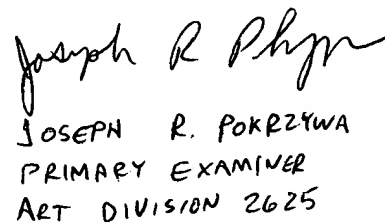 Joseph R
JOSEPH R. POKRZYWA
PRIMARY EXAMINER
ART DIVISION 2625